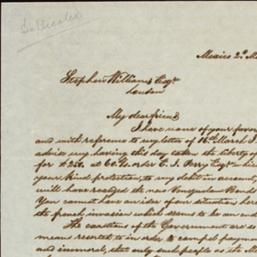 Duplicate
Mexico 2ᵈ M
Stephen Williams Esqʳ
London
My dear friend,
I have none of your favor
and with reference to my letter of 16ᵗʰ March I
advise my having this day taken the liberty
for $250. at 60 d. order C. J. Perry Esqʳ whi
your kind protection, to my debit in account,
will have realized the new Venezuelan Bonds
You cannot have an idea of our situation here
the french invasion which seems to be an end
The exactions of the Government are so
means resorted to in order to compel paymen
and immoral, that only such people as the M